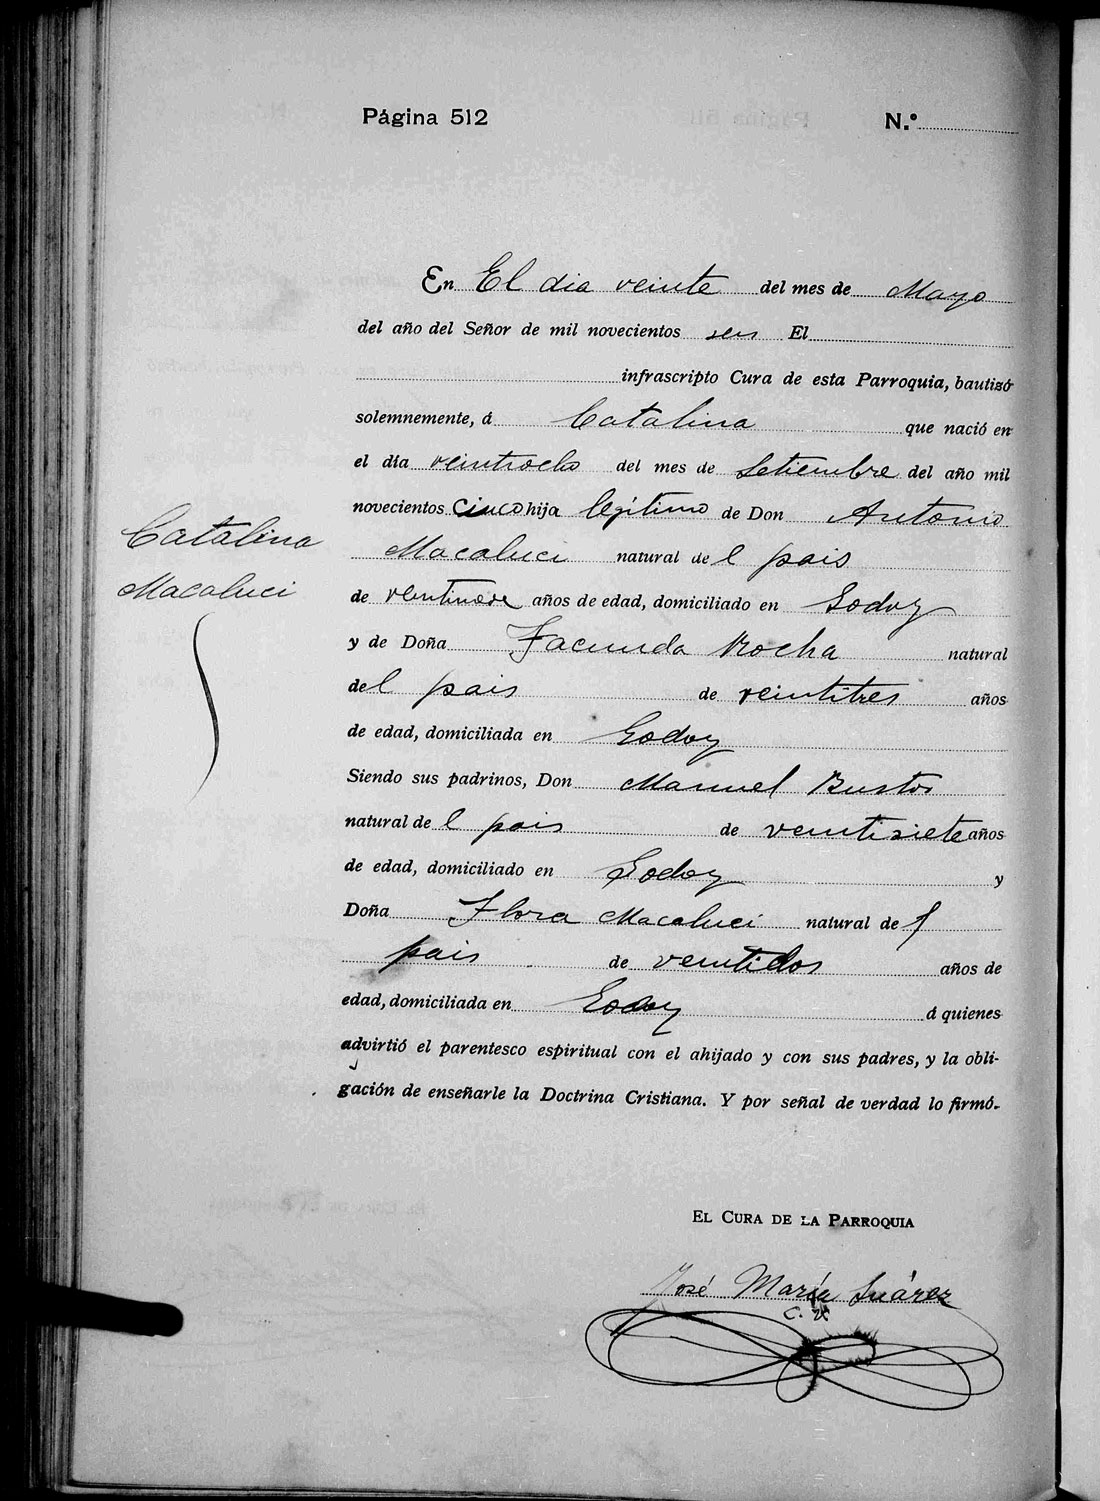 Página 512 N.º
En El dia veinte del mes de Mayo
del año del Señor de mil novecientos seis El
infrascripto Cura de esta Parroquia, bautizó
solemnemente, á Catalina que nació en
el día veintiocho del mes de Setiembre del año mil
novecientos cinco hija legítima de Don Antonio
Catalina
Macaluci natural del pais
Macaluci
de años de edad, domiciliado en Godoy
y de Doña Facunda Rocha natural
del pais de veintitres años
de edad, domiciliada en Godoy
Siendo sus padrinos, Don Manuel Bustos
natural del pais de veintisiete años
de edad, domiciliado en Godoy y
Doña Flora Macaluci natural del
pais de veintidos años de
edad, domiciliada en Godoy á quienes
advirtió el parentesco espiritual con el ahijado y con sus padres, y la obli-
gación de enseñarle la Doctrina Cristiana. Y por señal de verdad lo firmó.
EL CURA DE LA PARROQUIA
José María Suárez
C. V.